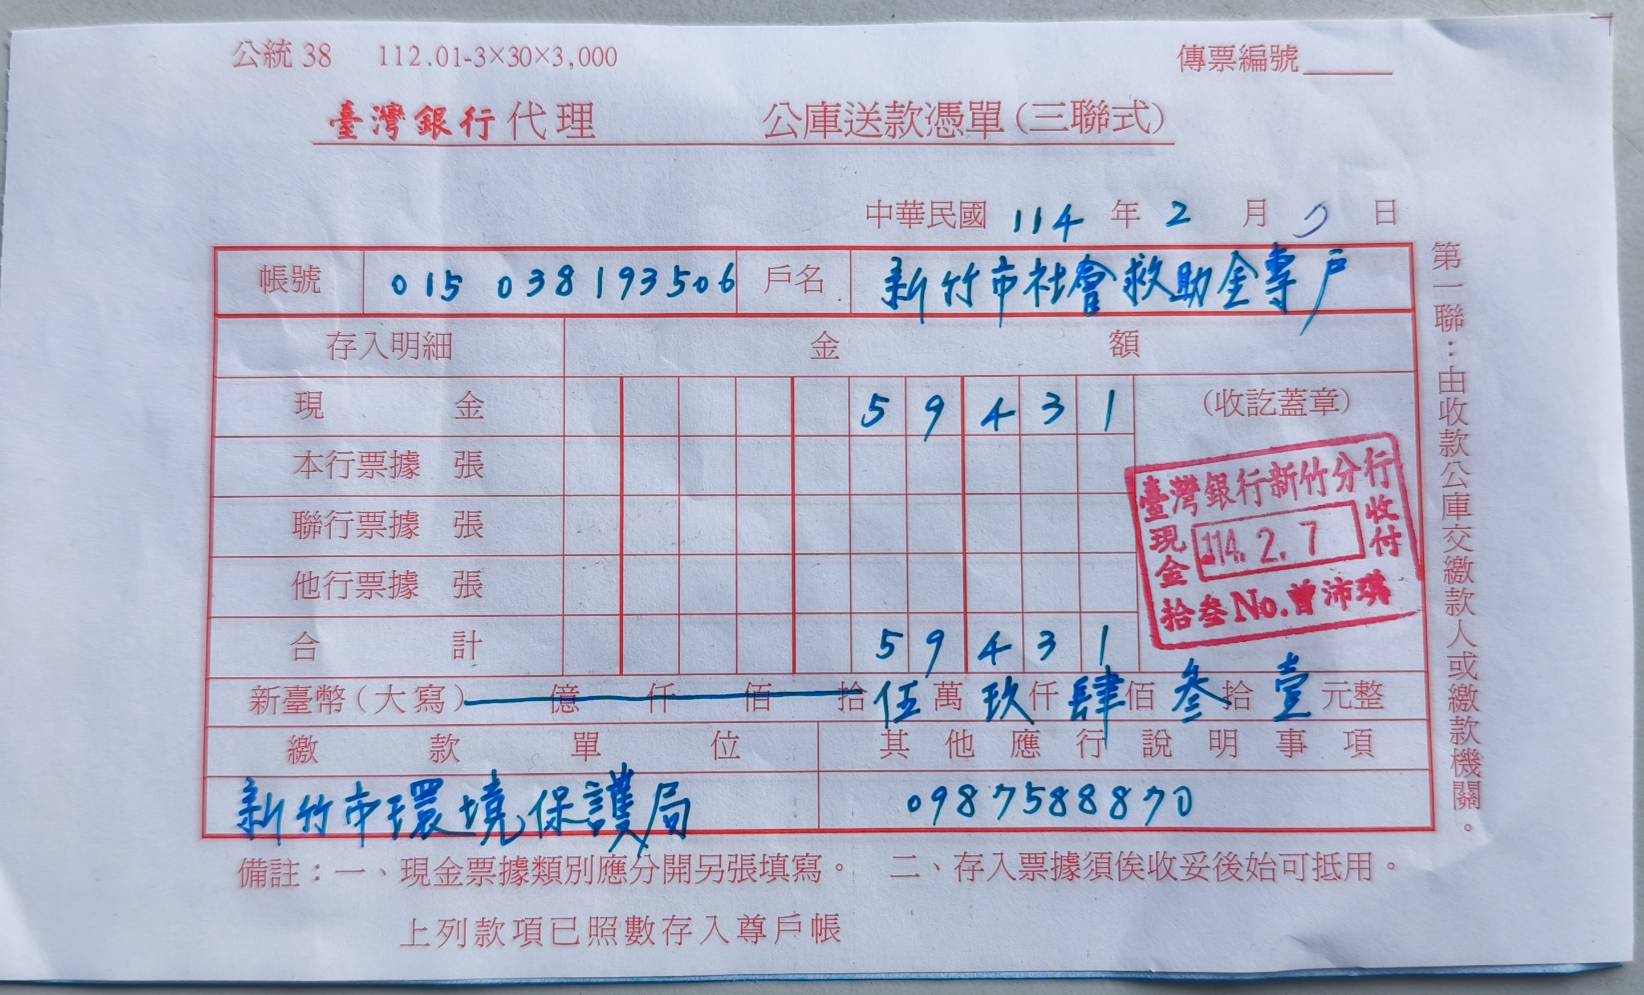 公統 38 112.01-3×30×3,000 傳票編號
臺灣銀行代理 公庫送款憑單(三聯式)
中華民國 114 年 2 月 7 日
帳號 015 038193506 戶名 新竹市社會救助金專戶
存入明細 金額
現金 59431 (收訖蓋章)
本行票據 張
聯行票據 張
他行票據 張
合計 59431
臺灣銀行新竹分行
現金 114.2.7 收付
拾叁 No. 曾沛琪
新臺幣(大寫) 億 仟 佰 拾 伍 萬 玖 仟 肆 佰 叁 拾 壹 元整
繳款單位 其他應行說明事項
新竹市環境保護局 0987588870
備註:一、現金票據類別應分開另張填寫。 二、存入票據須俟收妥後始可抵用。
上列款項已照數存入尊戶帳
第一聯:由收款公庫交繳款人或繳款機關。